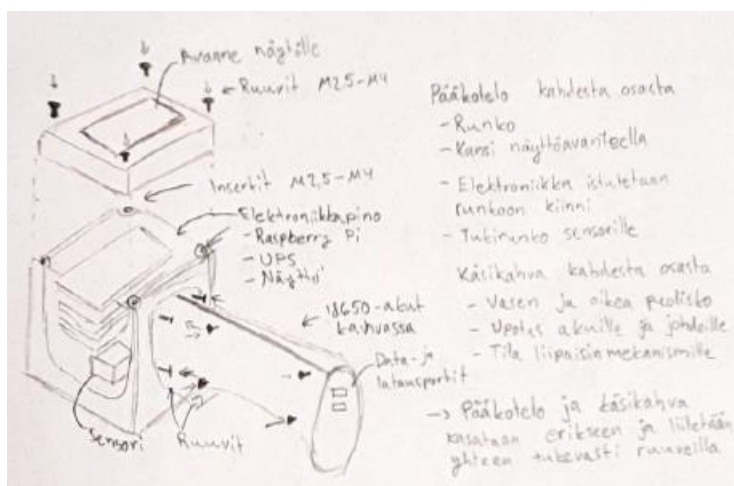 Avanne näytölle
Ruuvit M2,5-M4
Insertit M2,5-M4
Elektroniikkapino
- Raspberry Pi
- UPS
- Näyttö
18650-akut
kahvassa
Data- ja
latausportit
Sensori
Ruuvit
Pääkotelo kahdesta osasta
- Runko
- Kansi näyttöavanteella
- Elektroniikka istutetaan
runkoon kiinni
- Tukirunko sensorille
Käsikahva kahdesta osasta
- Vasen ja oikea puolisko
- Upotus akuille ja johdoille
- Tila liipaisinmekanismille
→ Pääkotelo ja käsikahva
kasataan erikseen ja liitetään
yhteen tukevasti ruuveilla